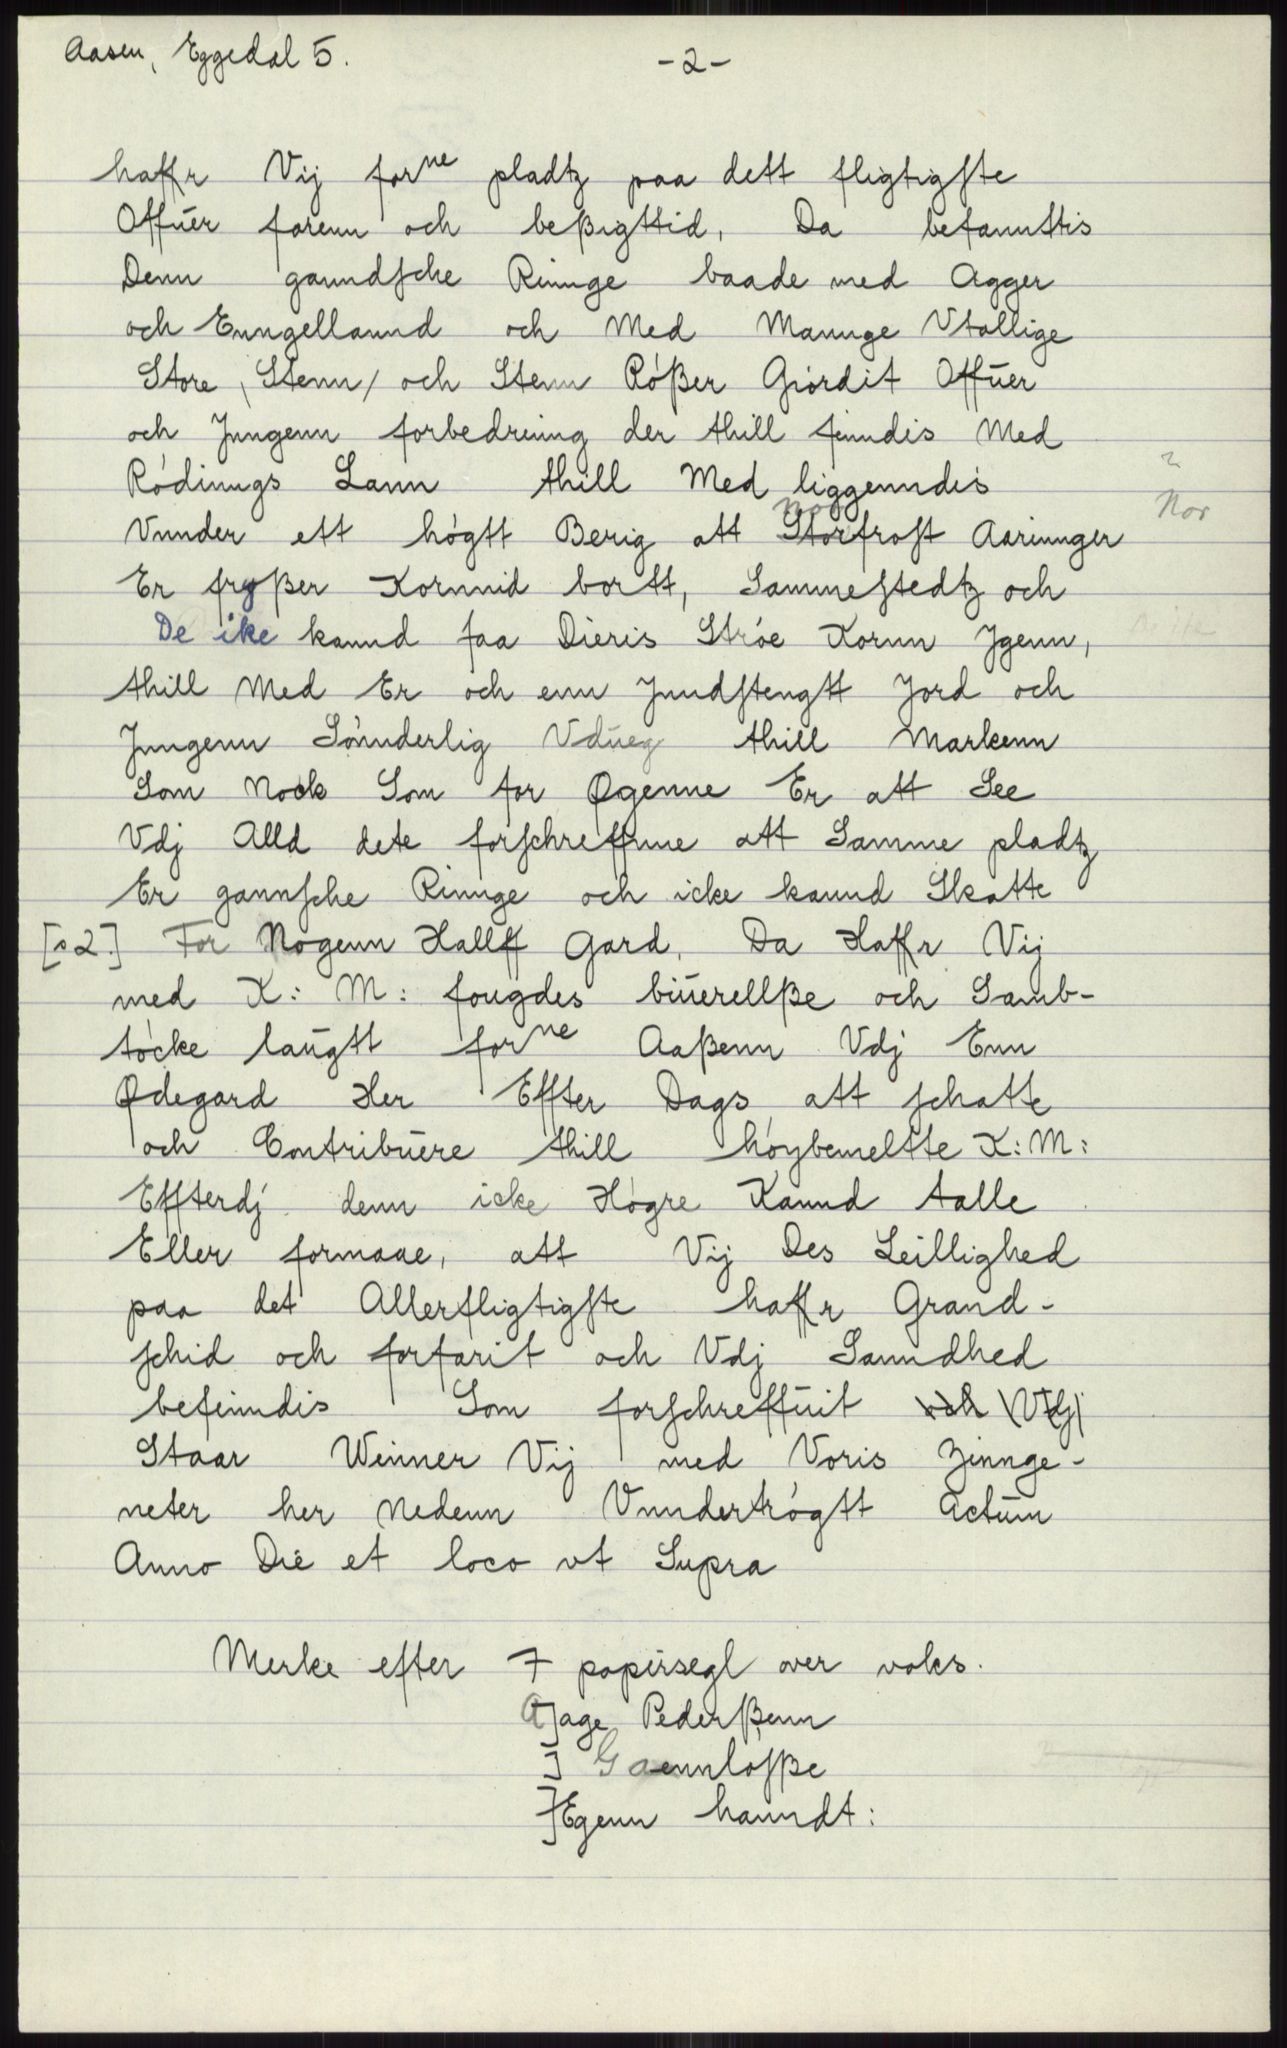 Aasen, Eggedal 5.
-2-
haffr Vij forne pladtz paa dett fligtigste
Offuer farenn och beßigttid, Da befannttis
Denn ganndsche Rinnge baade med Agger
och Enngellannd och Med Mannge Vtallige
Store, Stenn/ och Stenn Rößer Giördit Offuer
och Jnngenn forbedrinng der thill finndis Med
Rödinngs Lann thill Med liggenndis
2
Vnnder ett högtt Berig att Storfrost Aarinnger
nor
Nor
Er fryßer Kornnid bortt, Sammestedtz och
De ike kannd faa Dieris Ströe Kornn Jgenn,
thill Med Er och enn Jnndstengtt Jord och
Jnngenn Sönnderlig Vdueg thill Markenn
Som Nock Som for Øgenne Er att See
Vdj Alld dete forschreffnne att Samme pladtz
Er gannsche Rinnge och icke kannd Skatte
[s2.] For Nogenn Hallff Gard, Da Haffr Vij
med K: M: fougdes biuerellße och Samb-
töcke laugtt forne Aaßenn Vdj Enn
Ødegard Her Effter Dags att schatte
och Contribuere thill höybemeltte K: M:
Effterdj denn icke Högre Kannd talle
Eller formaae, att Vij Des Leillighed
paa det Allerfligtigste haffr Grand-
schid och forfarit och Vdj Sanndhed
befinndis Som forschreffuit och \Vdj/
Staar Winner Vij med Voris Zinnge-
neter her Nedenn Vnndertrögtt Actum
Anno Die et loco vt Supra
Merke efter 7 papirsegl over voks.
A]age Pederßenn
] Gaennlößße
]Egenn hanndt: